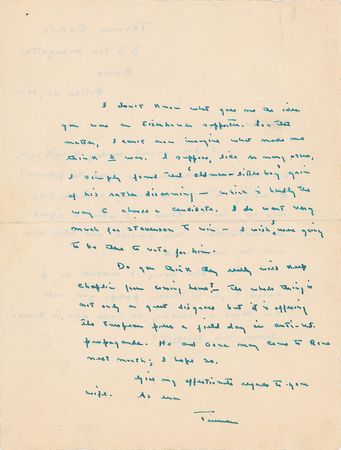 I don't know what gave me the idea
you were an Eisenhower supporter. For that
matter, I can't now imagine what made me
think I was. I suppose, like so many others,
I simply found that "old-man-little boy" grin
of his rather disarming - which is hardly the
way to choose a candidate. I do want very
much for Stevenson to win - I wish I were going
to be there to vote for him.
Do you think they really will keep
Chaplin from coming home? The whole thing is
not only a great disgrace but it is offering
the European press a field day in anti-U.S.
propaganda. He and Oona may come to Rome
next month; I hope so.
Give my affectionate regards to your
wife. As ever
Truman